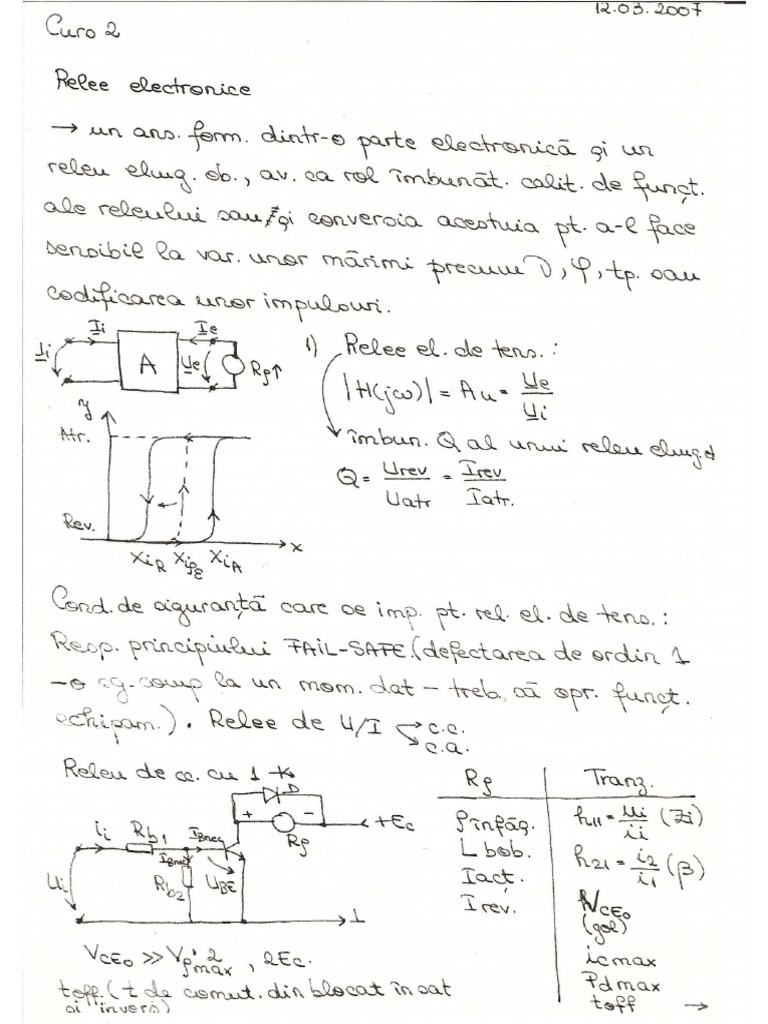 12.03.2007
Curs 2
Relee electronice
→ un ans. form. dintr-o parte electronică şi un
releu elmg. ob., av. ca rol îmbunăt. calit. de funcţ.
ale releului sau/şi conversia acestuia pt. a-l face
sensibil la var. unor mărimi precum ν, φ, tp. sau
codificarea unor impulsuri.
Ii Ie
Ui A Ue Rρ↑
1) Relee el. de tens.:
|H(jω)| = Au = Ue/Ui
îmbun. Q al unui releu elmg.
Q = Urev/Uatr = Irev/Iatr.
y
Atr.
Rev.
XiR XiρE XiA x
Cond. de siguranţă care se imp. pt. rel. el. de tens.:
Resp. principiului FAIL-SAFE. (defectarea de ordin 1
-o sg. comp la un mom. dat – treb. să opr. funcţ.
echipam.). Relee de U/I c.c.
c.a.
Releu de cc. cu 1
D
+ - Rρ +Ec
ii Rb1 IBnec
IBnec
Ui Rb2 UBE
⊥
VCEo >> Vρmax, 2Ec.
toff. (t de comut. din blocat în sat
si invers)
Rρ Tranz.
ρînfăş. h11 = ui/ii (Zi)
L bob. h21 = i2/i1 (β)
Iacţ. VCEo
Irev. (gol)
icmax
Pdmax
toff →